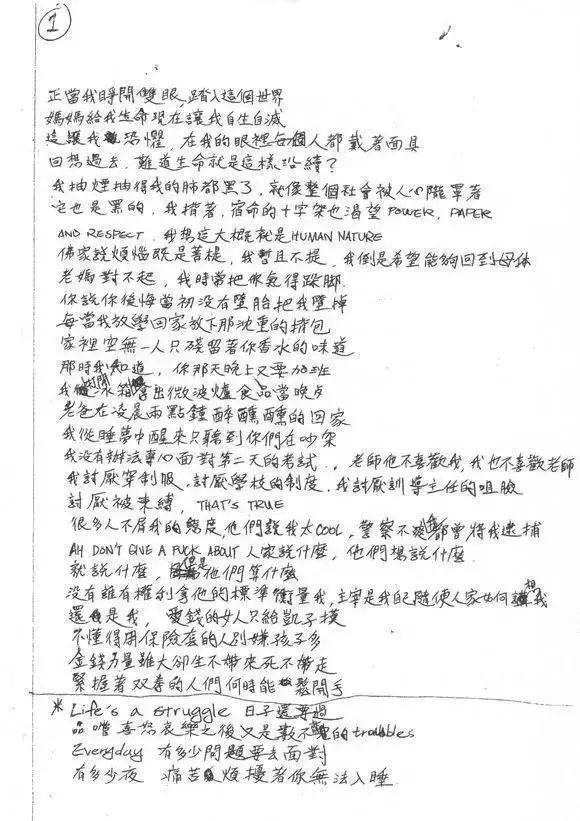 1
正當我睜開雙眼,踏入這個世界
媽媽給我生命現在讓我自生自滅
這讓我恐懼,在我的眼裡每個人都戴著面具
回想過去,難道生命就是這樣沿續?
我抽煙抽得我的肺都黑了,就像整個社會被人心隴罩著
它也是黑的,我揹著,宿命的十字架也渴望POWER, PAPER
AND RESPECT,我想這大概就是HUMAN NATURE
佛家說煩惱既是菩提,我暫且不提,我倒是希望能夠回到母体
老媽對不起,我時常把你氣得跺腳
你說你後悔當初没有墮胎把我墮掉
每當我放學回家放下那沈重的揹包
家裡空無一人只殘留著你香水的味道
那時我知道,你那天晚上又要加班
我打開冰箱拿出微波爐食品當晚点
老爸在凌晨兩點鐘醉醺醺的回家
我從睡夢中醒來只聽到你們在吵架
我没有辦法專心面對第二天的考試..老師他不喜歡我,我也不喜歡老師
我討厭穿制服,討厭學校的制度,我討厭訓導主任的咀臉
討厭被束縛,THAT'S TRUE
很多人不屑我的態度,他們說我太COOL,警察不爽都會將我逮捕
AH DON'T GIVE A FUCK ABOUT 人家説什麼,他們想説什麼
就説什麼,但是他們算什麼
没有誰有權利拿他的標準衡量我,主宰是我自己隨便人家如何想我
還是我,愛錢的女人只給凱子摸
不懂得用保險套的人別嫌孩子多
金錢力量雖大卻生不帶來死不帶走
緊握著双拳的人們何時能鬆開手
* Life's a struggle 日子還要過
品嚐喜怒哀樂之後又是數不盡的troubles
Everyday 有多少問題要去面對
有多少夜 痛苦煩擾著你無法入睡